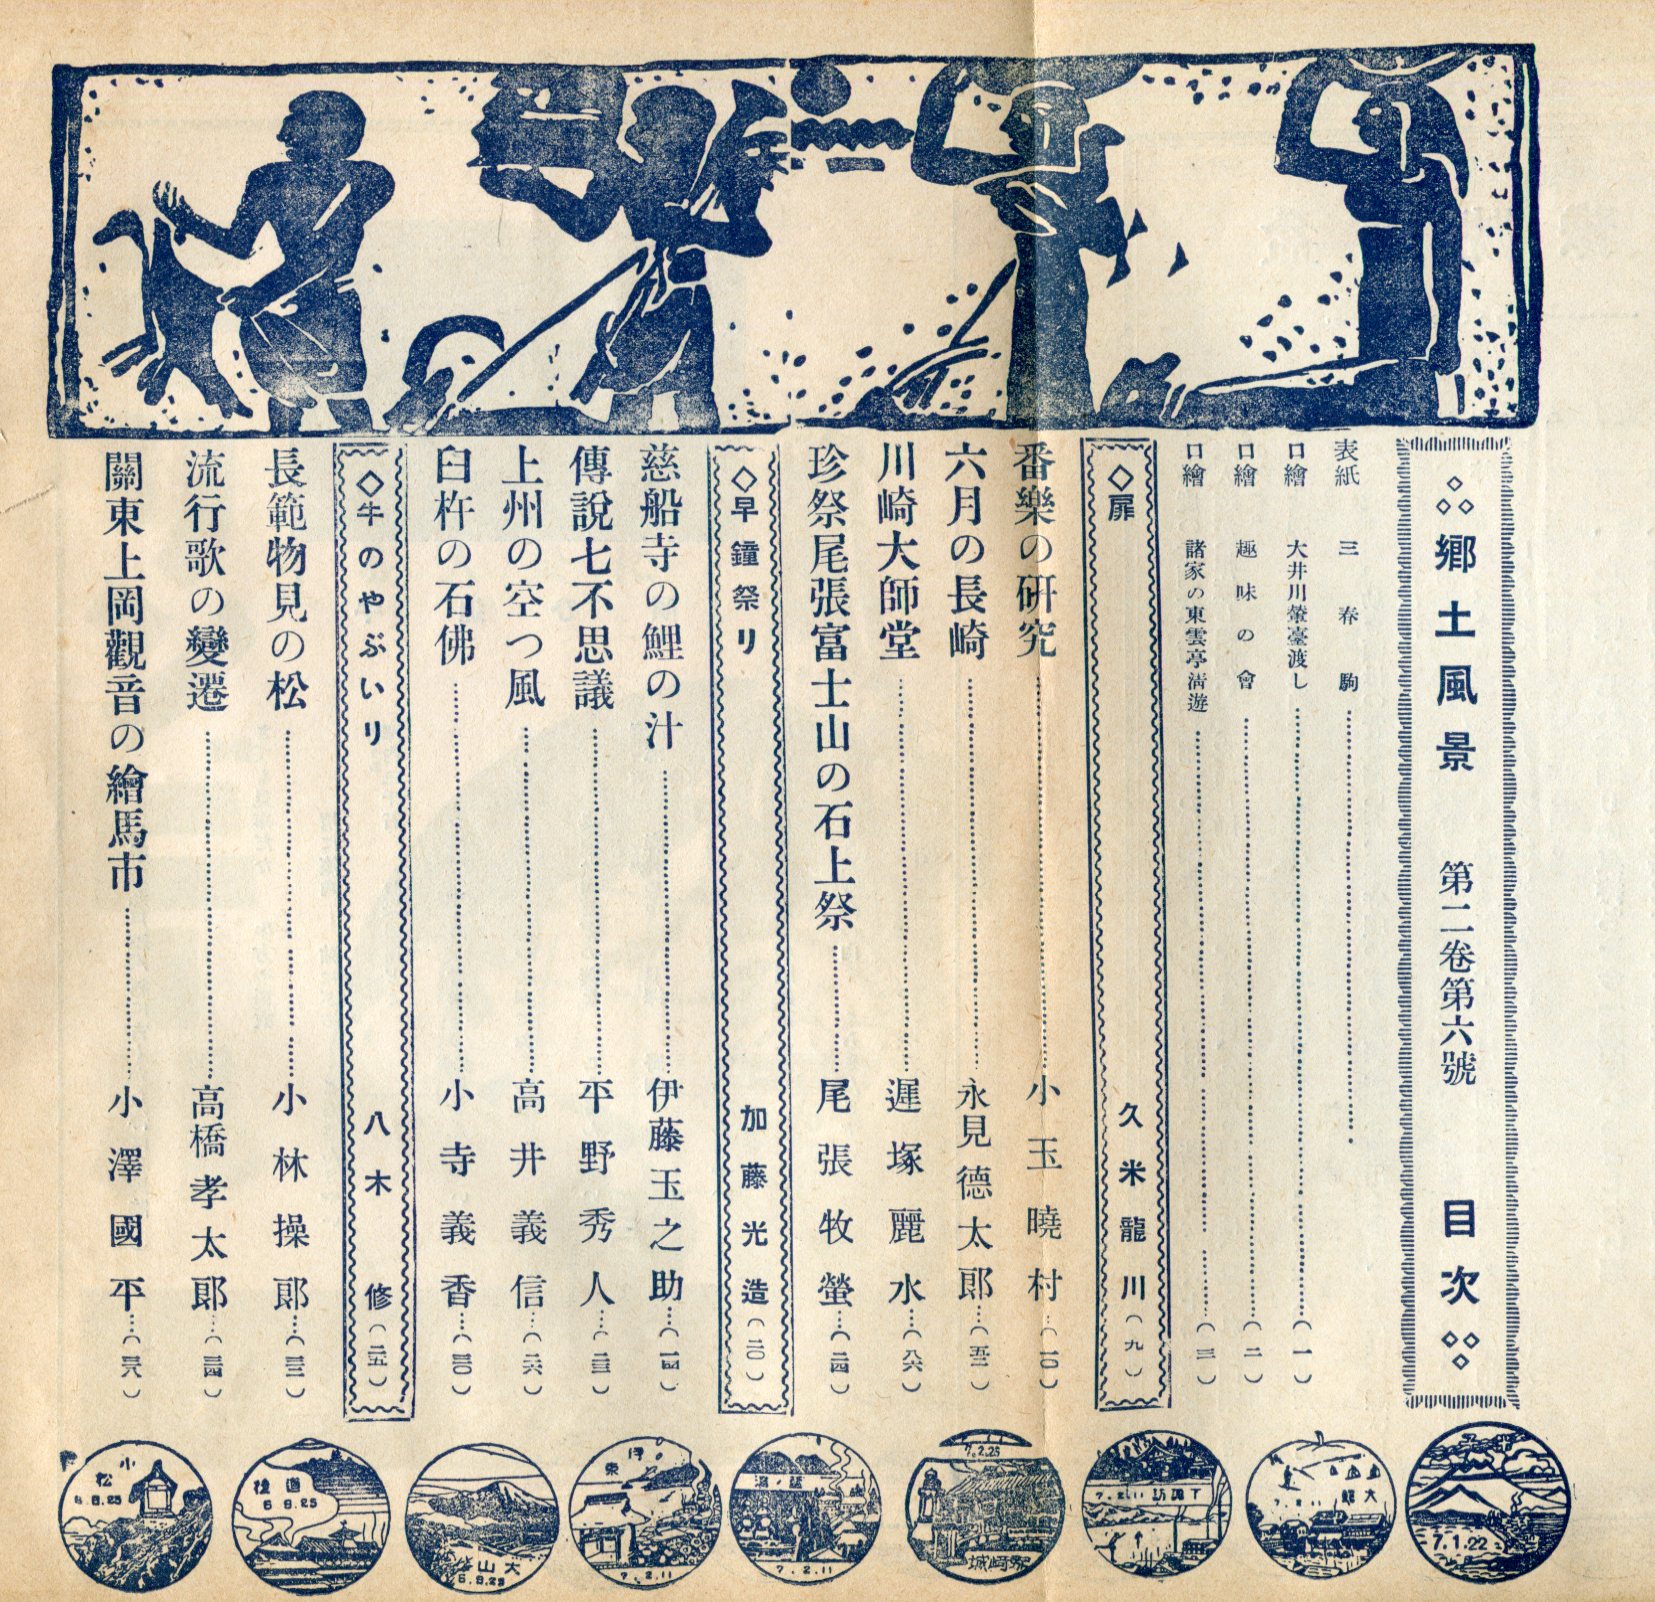 郷土風景 第二卷第六號 目次
表紙 三春駒
口繪 大井川輦臺渡し (一)
口繪 趣味の會 (二)
口繪 諸家の東雲亭淸遊 (三)
◇扉 久米龍川 (九)
番樂の研究 小玉曉村 (一〇)
六月の長崎 永見德太郎
川崎大師堂 遲塚麗水 (八六)
珍祭尾張富士山の石上祭 尾張牧螢 (二四)
◇早鐘祭り 加藤光造 (二〇)
慈船寺の鯉の汁 伊藤玉之助 (一四)
傳說七不思議 平野秀人
上州の空つ風 高井義信 (二六)
臼杵の石佛 小寺義香 (三〇)
◇牛のやぶいり 八木修 (二五)
長範物見の松 小林操郎
流行歌の變遷 高橋孝太郎 (三四)
關東上岡觀音の繪馬市 小澤國平 (三八)
7.1.22
大館
7.2.11
下諏訪
7.2.11
7.2.25
城崎驛
7.2.11
伊東
7.2.11
大山
6.9.25
道後
6.9.25
小松
6.9.25